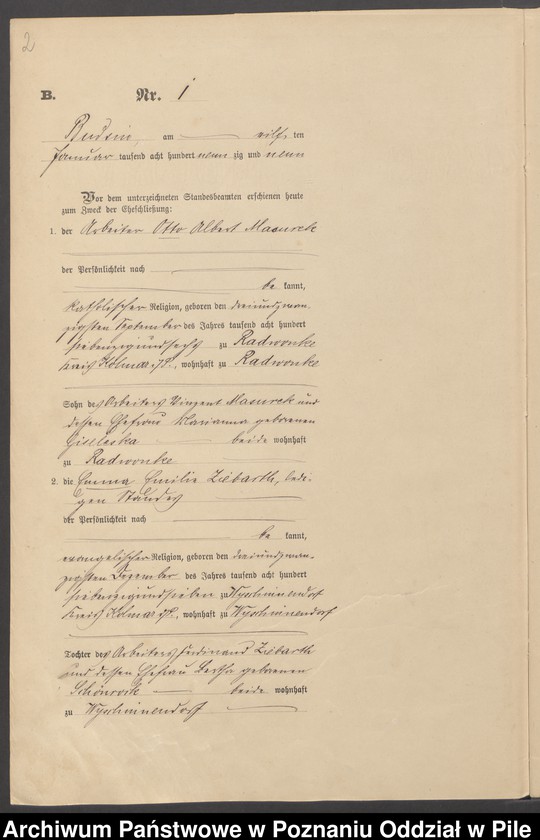 2
B. Nr. 1
Budsin, am eilf ten
Januar tausend acht hundert neun zig und neun
Vor dem unterzeichneten Standesbeamten erschienen heute
zum Zweck der Eheschließung:
1. der Arbeiter Otto Albert Masurek
der Persönlichkeit nach
be kannt,
katholischer Religion, geboren den dreiundzwan-
zigsten September des Jahres tausend acht hundert
siebenzigundsechs zu Radwonke
Kreis Kolmar i/P., wohnhaft zu Radwonke
Sohn des Arbeiters Vinzent Masurek und
dessen Ehefrau Marianna geborenen
beide wohnhaft
zu Radwonke
2. die Emma Emilie Ziebarth, ledi-
gen Standes
der Persönlichkeit nach
be kannt,
evangelischer Religion, geboren den dreiundzwan-
zigsten Dezember des Jahres tausend acht hundert
siebenzigundsieben zu Wyschinnendorf
Kreis Kolmar i/P., wohnhaft zu Wyschinnendorf
Tochter des Arbeiters Ferdinand Ziebarth
und dessen Ehefrau Bertha geborenen
Schönrock beide wohnhaft
zu Wyschinnendorf
Archiwum Państwowe w Poznaniu Oddział w Pile